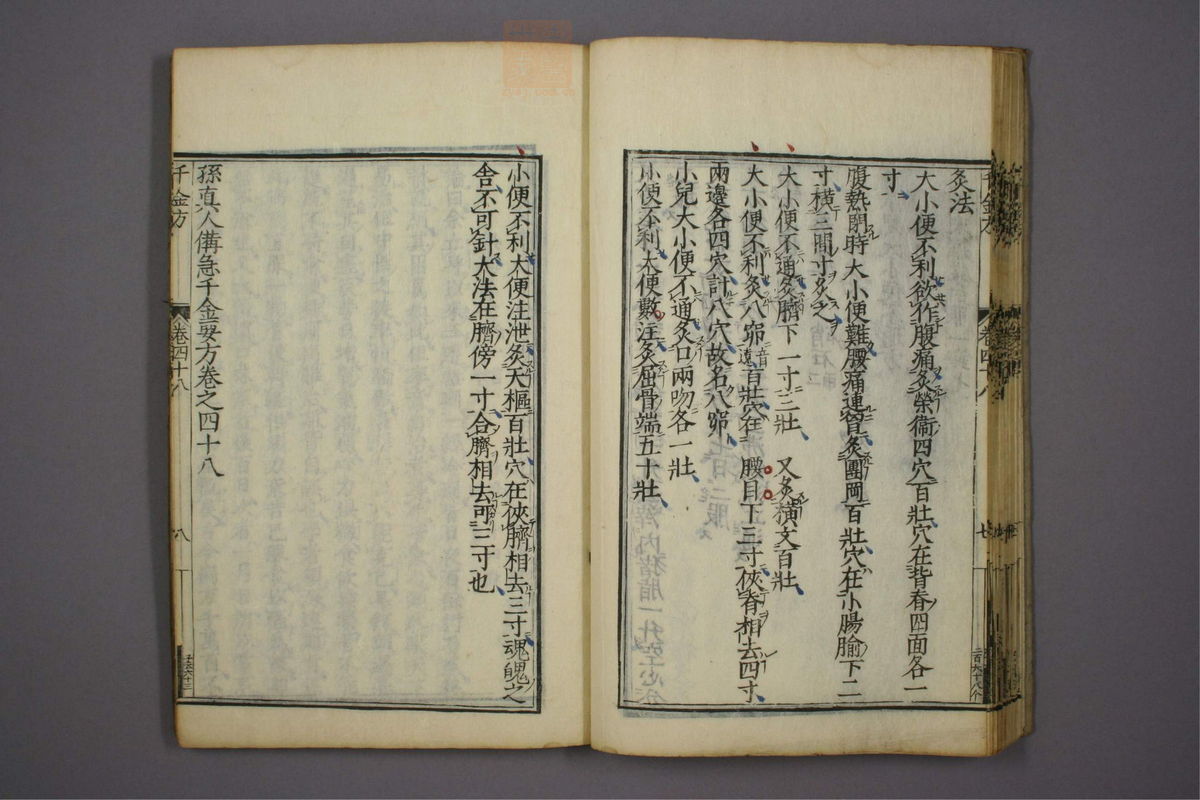 灸法
大小便不利欲作腹痛灸榮衞四穴百壯穴在背脊四面各一
寸
腹熱閉時大小便難腰痛連胷灸團岡百壯穴在小腸腧下二
寸橫三間寸灸之
大小便不通灸臍下一寸三壯 又灸橫文百壯
大小便不利灸八窌百壯穴在腰目下三寸俠脊相去四寸
兩邊各四穴計八穴故名八窌
小兒大小便不通灸口兩吻各一壯
小便不利大便數注灸屈骨端五十壯
千金方 卷四十八 七
小便不利大便注泄灸天樞百壯穴在俠臍相去三寸魂魄之
舍不可針大法在臍傍一寸合臍相去可三寸也
孫真人備急千金要方卷之四十八
千金方 卷四十八 八